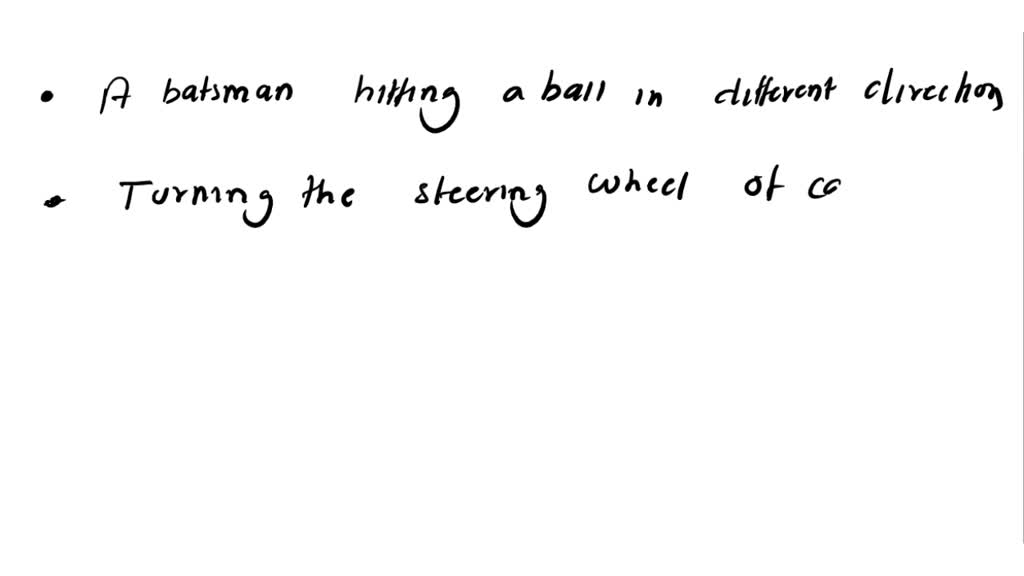 • A batsman hitting a ball in different direction
• Turning the steering wheel of ca